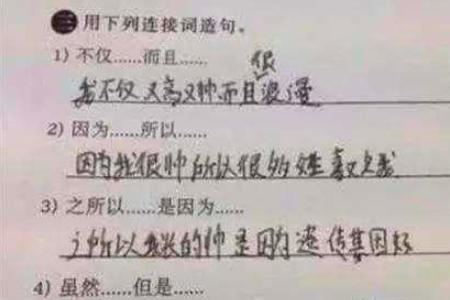 三 用下列连接词造句。
1) 不仅……而且……
很
我不仅又高又帅而且浪漫
2) 因为……所以……
因为我很帅所以很多喜欢我
3) 之所以……是因为……
之所以我长的帅是因为遗传基因好
4) 虽然……但是……